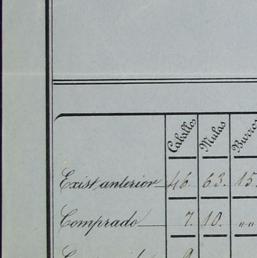 Caballos Mulas Burros
Exist. anterior 46. 63. 15.
Comprado 7. 10. „